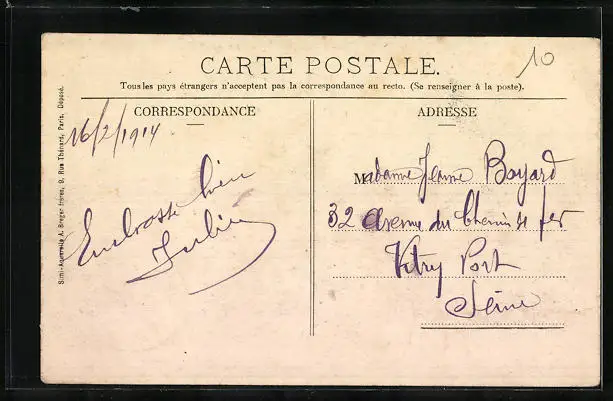 10
CARTE POSTALE.
Tous les pays étrangers n'acceptent pas la correspondance au recto. (Se renseigner à la poste).
CORRESPONDANCE
16/2/1914
Embrasse bien
ADRESSE
Madame Jeanne Bayard
32 Avenue du Chemin de fer
Vitry Port
Seine
Simi-Aquarelle A. Breger frères, 9, Rue Thénard, Paris. Déposé.